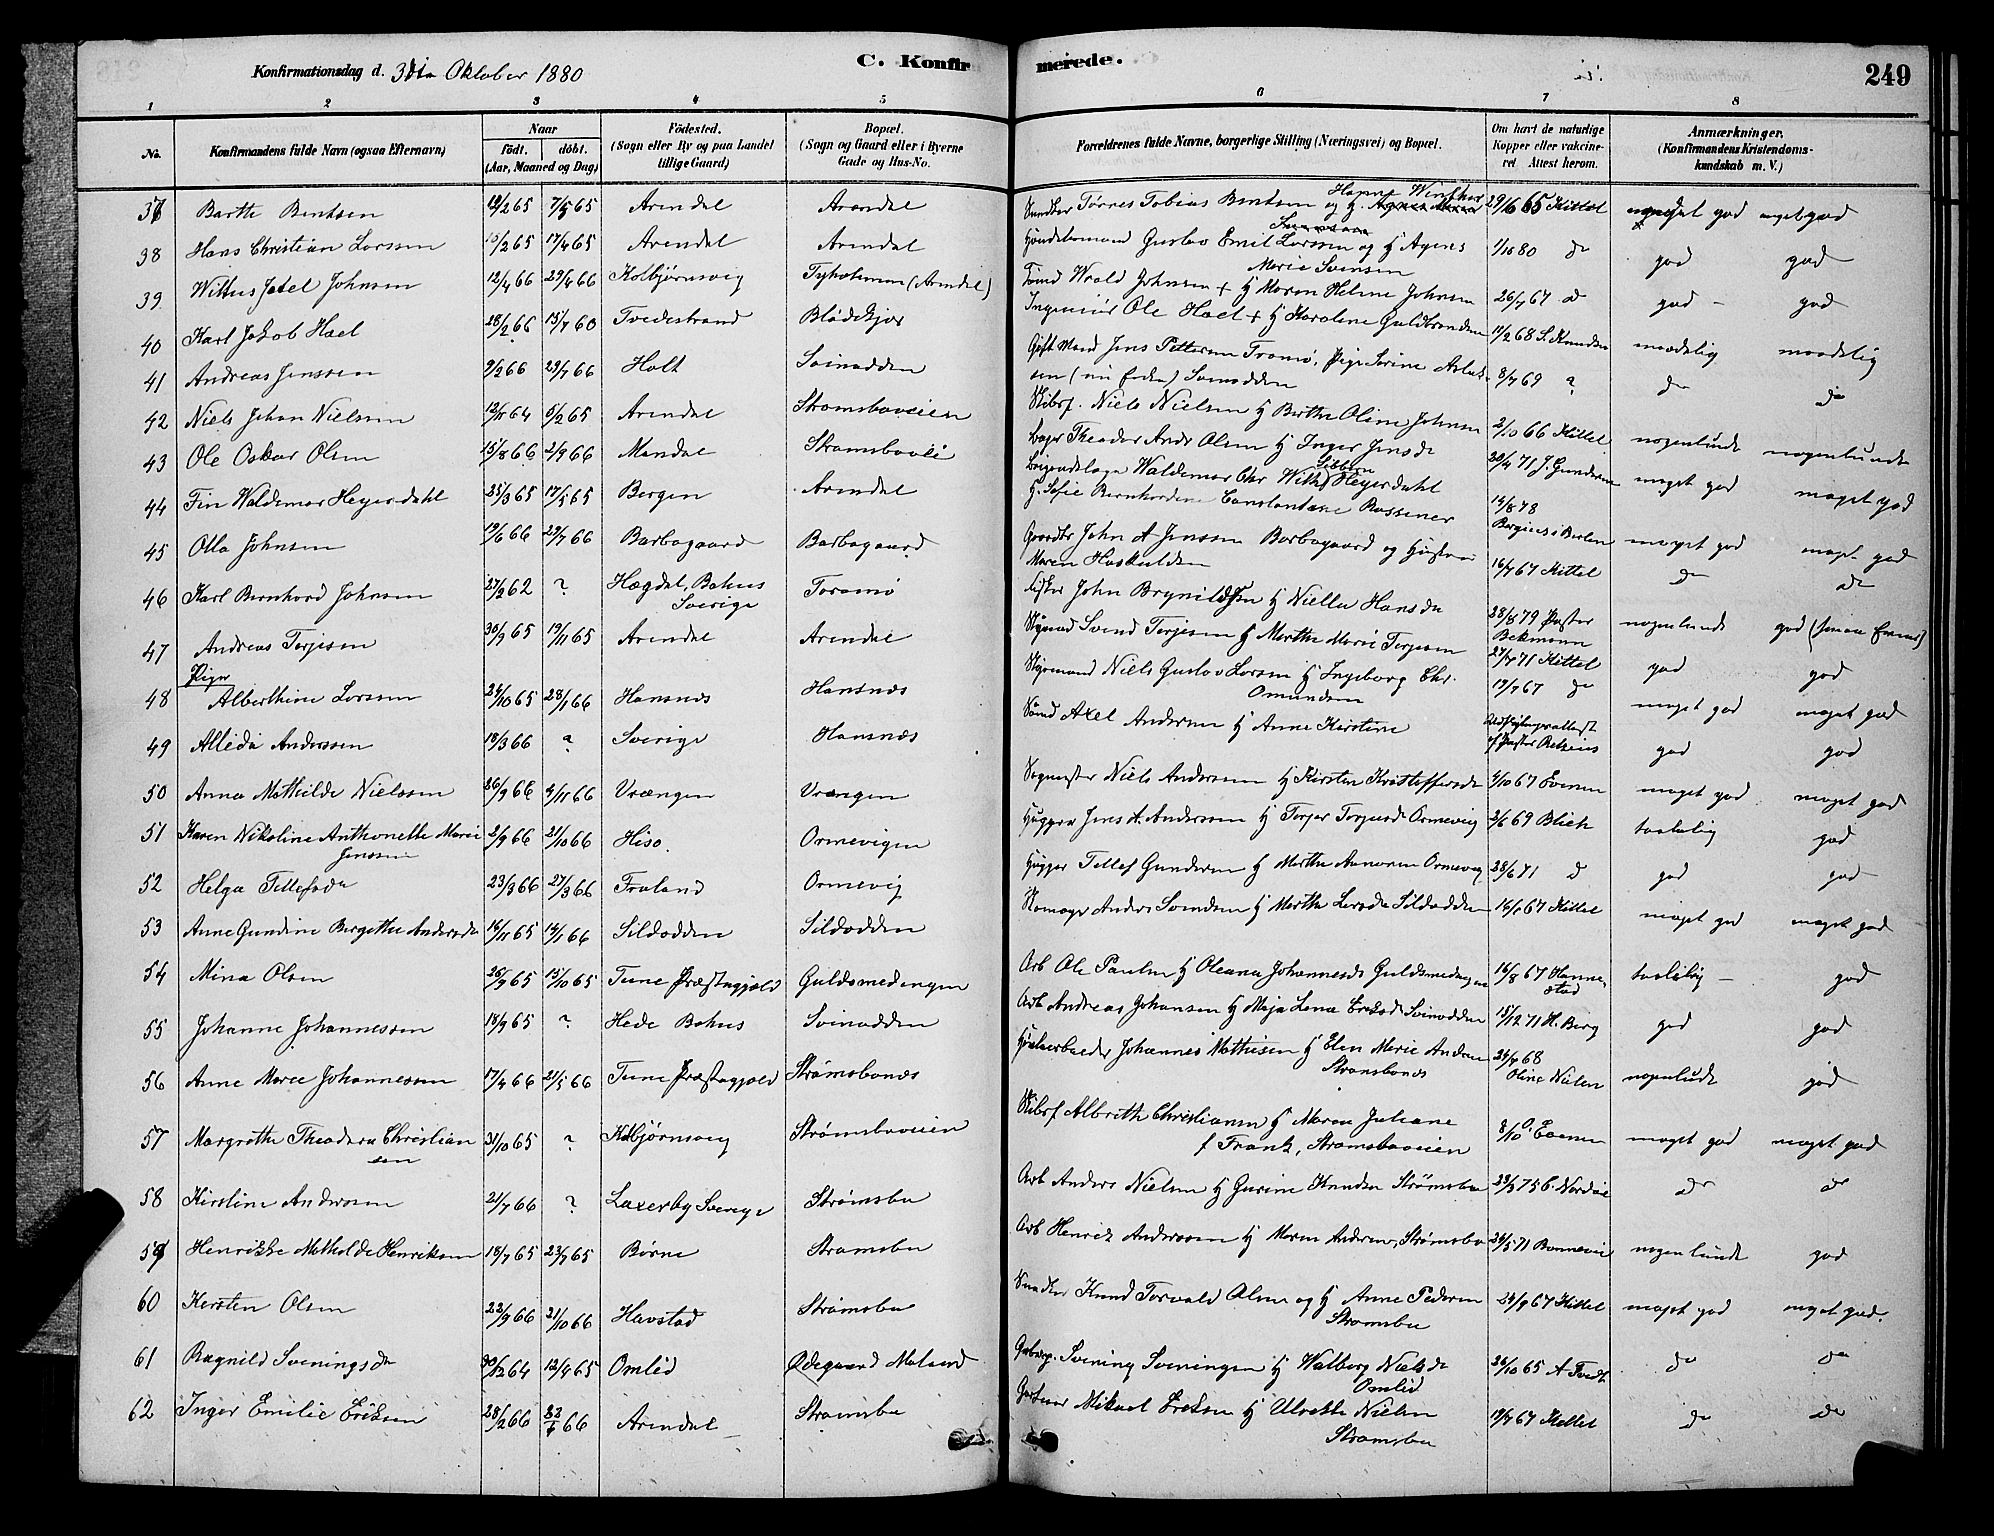 Konfirmationsdag d. 3die Oktober 1880
C. Konfir
merede.
249
1 2 3 4 5 6 7 8
No.
Konfirmandens fulde Navn (ogsaa Efternavn)
Naar
født. døbt.
(Aar, Maaned og Dag)
Fødested.
(Sogn eller By og paa Landet
tillige Gaard)
Bopæl.
(Sogn og Gaard eller i Byerne
Gade og Hus-No.
Forældrenes fulde Navne, borgerlige Stilling (Næringsvei) og Bopæl.
Om havt de naturlige
Kopper eller vakcine-
ret Attest herom.
Anmærkninger.
(Konfirmandens Kristendoms-
kundskab m. V.)
37 Barthe Bentsen 19/2 65 7/5 65 Arendal Arendal Tørres Tobias Bentsen og H. Hanne Winther 29/6 65 Kittel meget god meget god
38 Hans Christian Larssen 15/2 65 17/4 65 Arendal Arendal Handelsmand Gustav Emil Larssen og H Agnes 1/10 80 do god god
Marie Svensen
39 Johnsen 12/4 66 29/4 66 Kolbjørnsvig Tyholmen (Arendal) Tømd Wrold Johnsen + H Maren Helene Johnsen 26/7 67 d god - god
40 Karl Jakob Hael 28/2 66 15/7 60 Tvedestrand Blødekjær Ingeniør Ole Hael + H Karoline Guldbrandsen 11/2 68 S. Knudsen maadelig maadelig
41 Andreas Jenssen 9/2 66 29/7 66 Holt Svinodden Gift Mand Jens Pettersen Tromø, Pige Sorine Aslak-
sen Svinodden 8/7 69 ? do do
42 Niels Johan Nielssen 12/11 64 5/2 65 Arendal Strømsboveien Skibsf. Niels Nielsen H Berthe Oline Johnsen 2/10 66 Kittel nogenlunde nogenlunde
43 Ole Oskar Olsen 15/8 66 2/9 66 Mandal Strømsboveie Bager Theodor Andr Olsen H Inger Jensdr 20/4 71 J. Gundersen meget god meget god
44 Fin Waldemar Heyerdahl 25/3 65 17/5 65 Bergen Arendal Waldemar Chr Wilh Sibbern Heyerdahl 14/8 78
H. Sofie Bernhardine Constantine Rossener
45 Olla Johnsen 19/6 66 29/7 66 Barbogaard Barbogaard John A Jenssen Barbogaard og Hustru meget god meget god
Maren Haskuldsen 16/7 67 Kittel
46 Karl Bernhard Johnsen 27/2 62 ? Hægdal, Bahus Tromø Fisker John Brynildsen H Niella Hansdr do do
Sverige
47 Andreas Terjesen 30/9 65 19/11 65 Arendal Arendal Svend Terjesen H Marthe Marie Terjesen 28/8 79 Pastor nogenlunde god
Bekmann
Piger
48 Alberthine Larssen 24/10 65 28/1 66 Hansnæs Hansnæs Styrmand Niels Gustav Larsen H Ingeborg Chr. 27/7 71 Kittel god god
Omundsen 19/7 67 do meget god meget god
49 Allida Anderssen 18/3 66 ? Sverige Hansnæs Tømd Axel Andersen H Anne Kirstine god god
50 Anna Mathilde Nielssen 26/9 66 4/11 66 Vrængen Vrængen Niels Anderssen H Kirsten Kristoffersdr 4/10 67 Evensen meget god meget god
51 Karen Nikoline Anthonette Marie 2/9 66 21/10 66 Hisø Ormevigen Hugger Jens A Anderssen H Torjer Torjusdr Ormevig 2/6 69 Blich taalelig god
Jenssen
52 Helga Tellefsdr 23/3 66 27/3 66 Froland Ormevig Hugger Tellef Gundersen H Marthe Aanonsen Ormevig 28/6 71 d god god
53 Anne Gundine Bergethe Andersdr 14/11 65 14/1 66 Sildodden Sildodden Skomager Anders Svendsen H Marthe Larsdr Sildodden 16/6 67 Kittel meget god meget god
54 Mina Olsen 26/9 65 15/10 65 Tune Præstegjæld Guldsmedengen Arb Ole Paulsen H Oleana Johannesdr Guldsmedengen 16/8 67 Hanne- taalelig - god
stad
55 Johanne Johannessen 18/9 65 ? Hede Bahus Svinodden Arb Andreas Johansen H Maja Lena Eriksdr Svinodden 18/12 71 H. Berg god god
56 Anne Marie Johannessen 17/4 66 21/5 66 Tune Præstegjæld Strømsbonæs Johannes Mathisen H Elen Marie Andersen 24/9 68
Strømsbonæs Oline Nielsen nogenlunde god
57 Margrethe Theodora Christian 31/10 65 ? Kolbjørnsvig Strømsboveien Skibsf Albreth Christiansen H Maren Juliane
sen f Frank, Strømsboveien 8/10 Evensen meget god meget god
58 Kirstine Anderssen 21/7 66 ? Laxerby Sverige Strømsbu Arb Anders Nielsen H Gurine Knudsen Strømsbu 23/3 75 do do
59 Henrikke Mathilde Henriksen 18/7 65 23/7 65 Børne Strømsbu Arb Henrik Anderssen H Maren Andersen, Strømsbo 24/5 71 Bonnevie nogenlunde god
60 Kersten Olsen 22/9 66 21/10 66 Havstad Strømsbu Knud Torvald Olsen og H Anne Pedersen 24/9 67 Kittel meget god meget god.
Strømsbu
61 Ragnild Sveningsdr 30/12 64 12/4 65 Omlid Ødegaard Moland Svening Sveningsen H Walborg Nielsdr 26/10 65 A Tvedt do do
Omlid
62 Inger Emilie Eriksen 28/2 66 22/4 66 Arendal Strømsbu Mikael Eriksen H Ulvette Nielsen 19/7 67 Kittel do do
Strømsbu